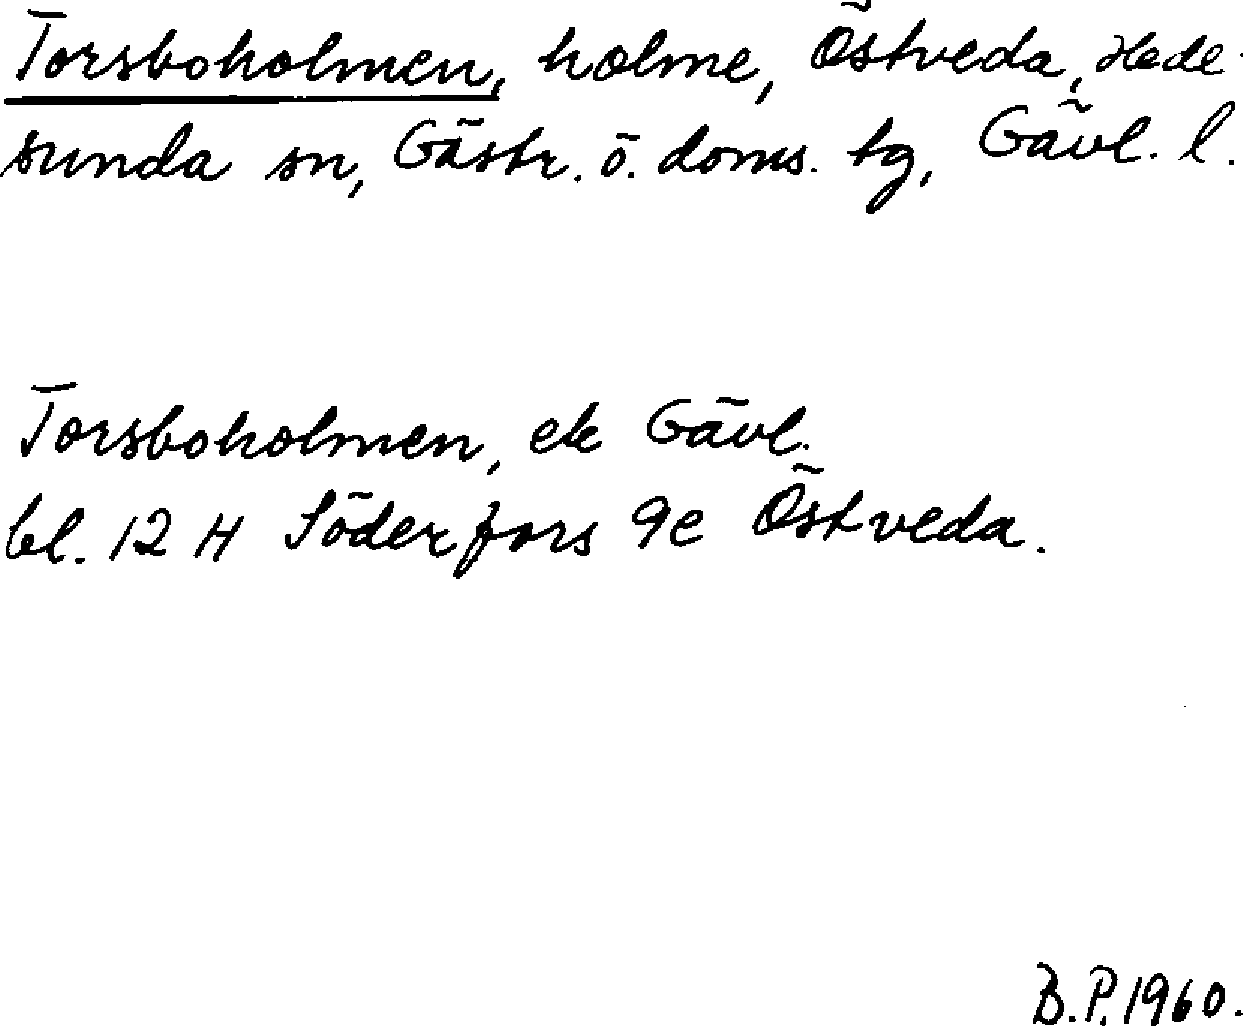 Torsboholmen, holme, Östveda, Hede-
sunda sn, Gästr. ö. doms. tg, Gävl. l.
Torsboholmen, ek Gävl.
bl. 12 H Söderfors 9e Östveda.
B.P. 1960.